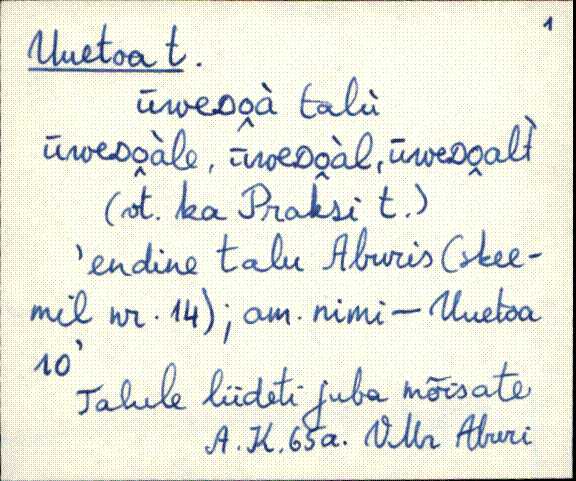 1
Uuetoa t.
ūwedo̭à talù
ūwedo̭àle, ūwedo̭àl, ūwedo̭alt̀
(vt. ka Praksi t.)
'endine talu Aburis (skee-
mil nr. 14); am. nimi — Uuetoa
10'
Talule liideti juba mõisate
A. K. 65a. VMr Aburi